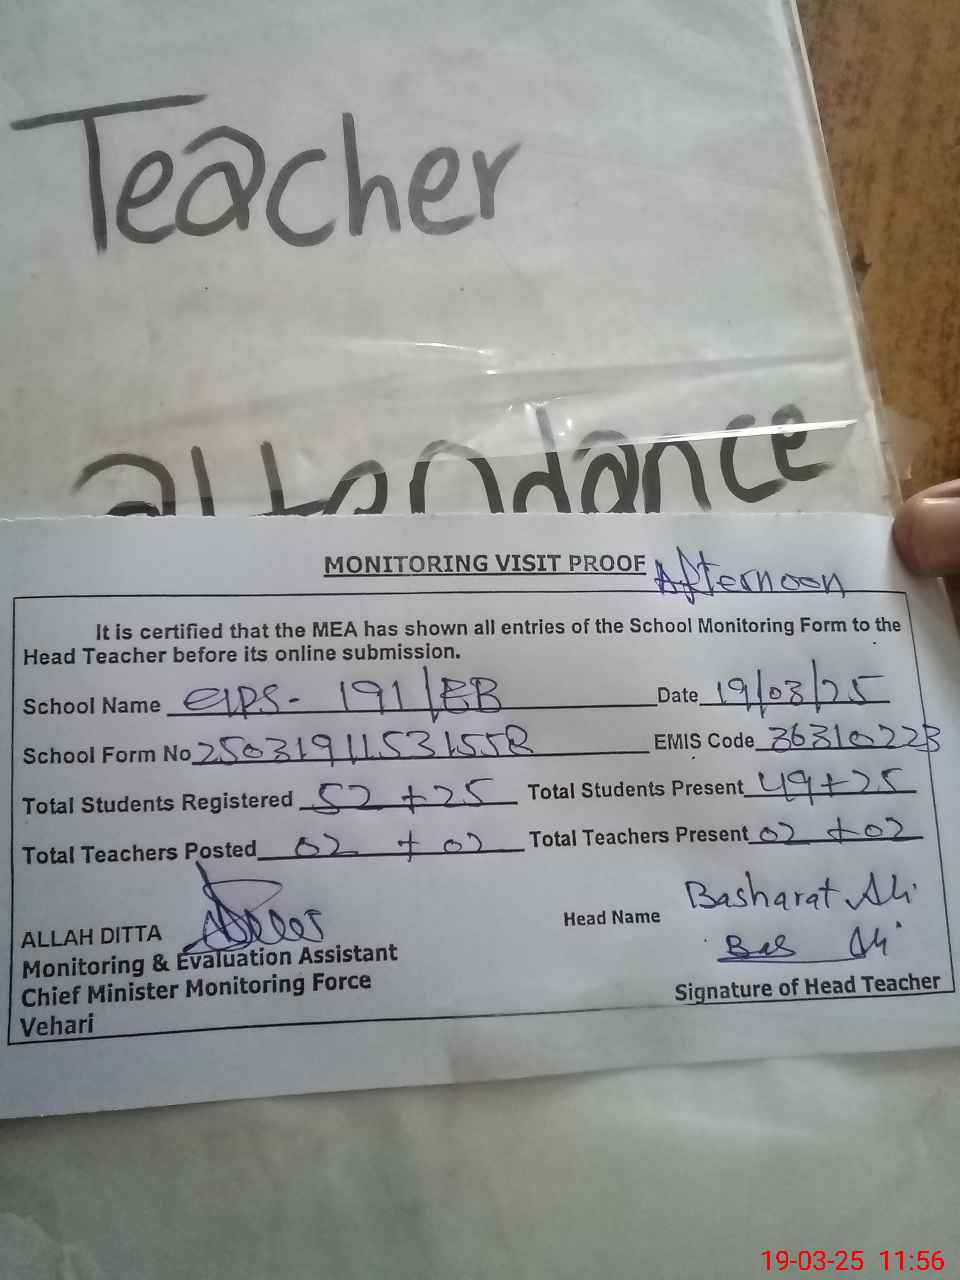 Teacher
attendance
MONITORING VISIT PROOF Afternoon
It is certified that the MEA has shown all entries of the School Monitoring Form to the
Head Teacher before its online submission.
School Name GPS- 191/EB Date 19/03/25
School Form No 25031911531558 EMIS Code 36310223
Total Students Registered 52 + 25 Total Students Present 49+25
Total Teachers Posted 02 + 02 Total Teachers Present 02 + 02
ALLAH DITTA Head Name Basharat Ali
Monitoring & Evaluation Assistant Bas Ali
Chief Minister Monitoring Force Signature of Head Teacher
Vehari
19-03-25 11:56